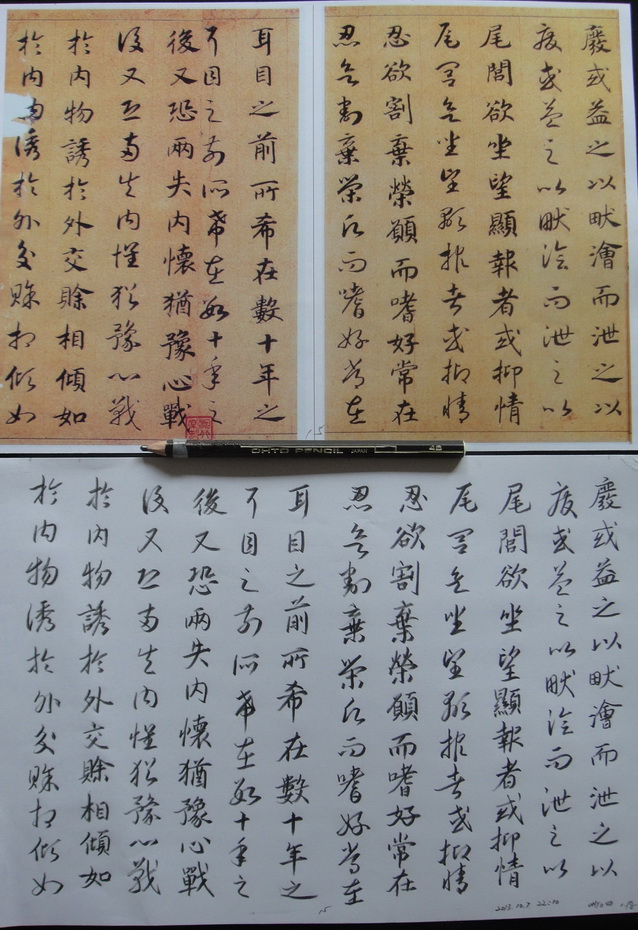 廢或益之以畎澮而泄之以
廢或益之以畎澮而泄之以
尾閭欲坐望顯報者或抑情
尾閭欲坐望顯報者或抑情
忍欲割棄榮願而嗜好常在
忍欲割棄榮願而嗜好常在
耳目之前所希在數十年之
耳目之前所希在數十年之
後又恐兩失內懷猶豫心戰
後又恐兩失內懷猶豫心戰
於內物誘於外交賒相傾如
於內物誘於外交賒相傾如
15
OHTO PENCIL JAPAN 4B
廢或益之以畎澮而泄之以
廢或益之以畎澮而泄之以
尾閭欲坐望顯報者或抑情
尾閭欲坐望顯報者或抑情
忍欲割棄榮願而嗜好常在
忍欲割棄榮願而嗜好常在
耳目之前所希在數十年之
耳目之前所希在數十年之
後又恐兩失內懷猶豫心戰
後又恐兩失內懷猶豫心戰
於內物誘於外交賒相傾如
於內物誘於外交賒相傾如
15